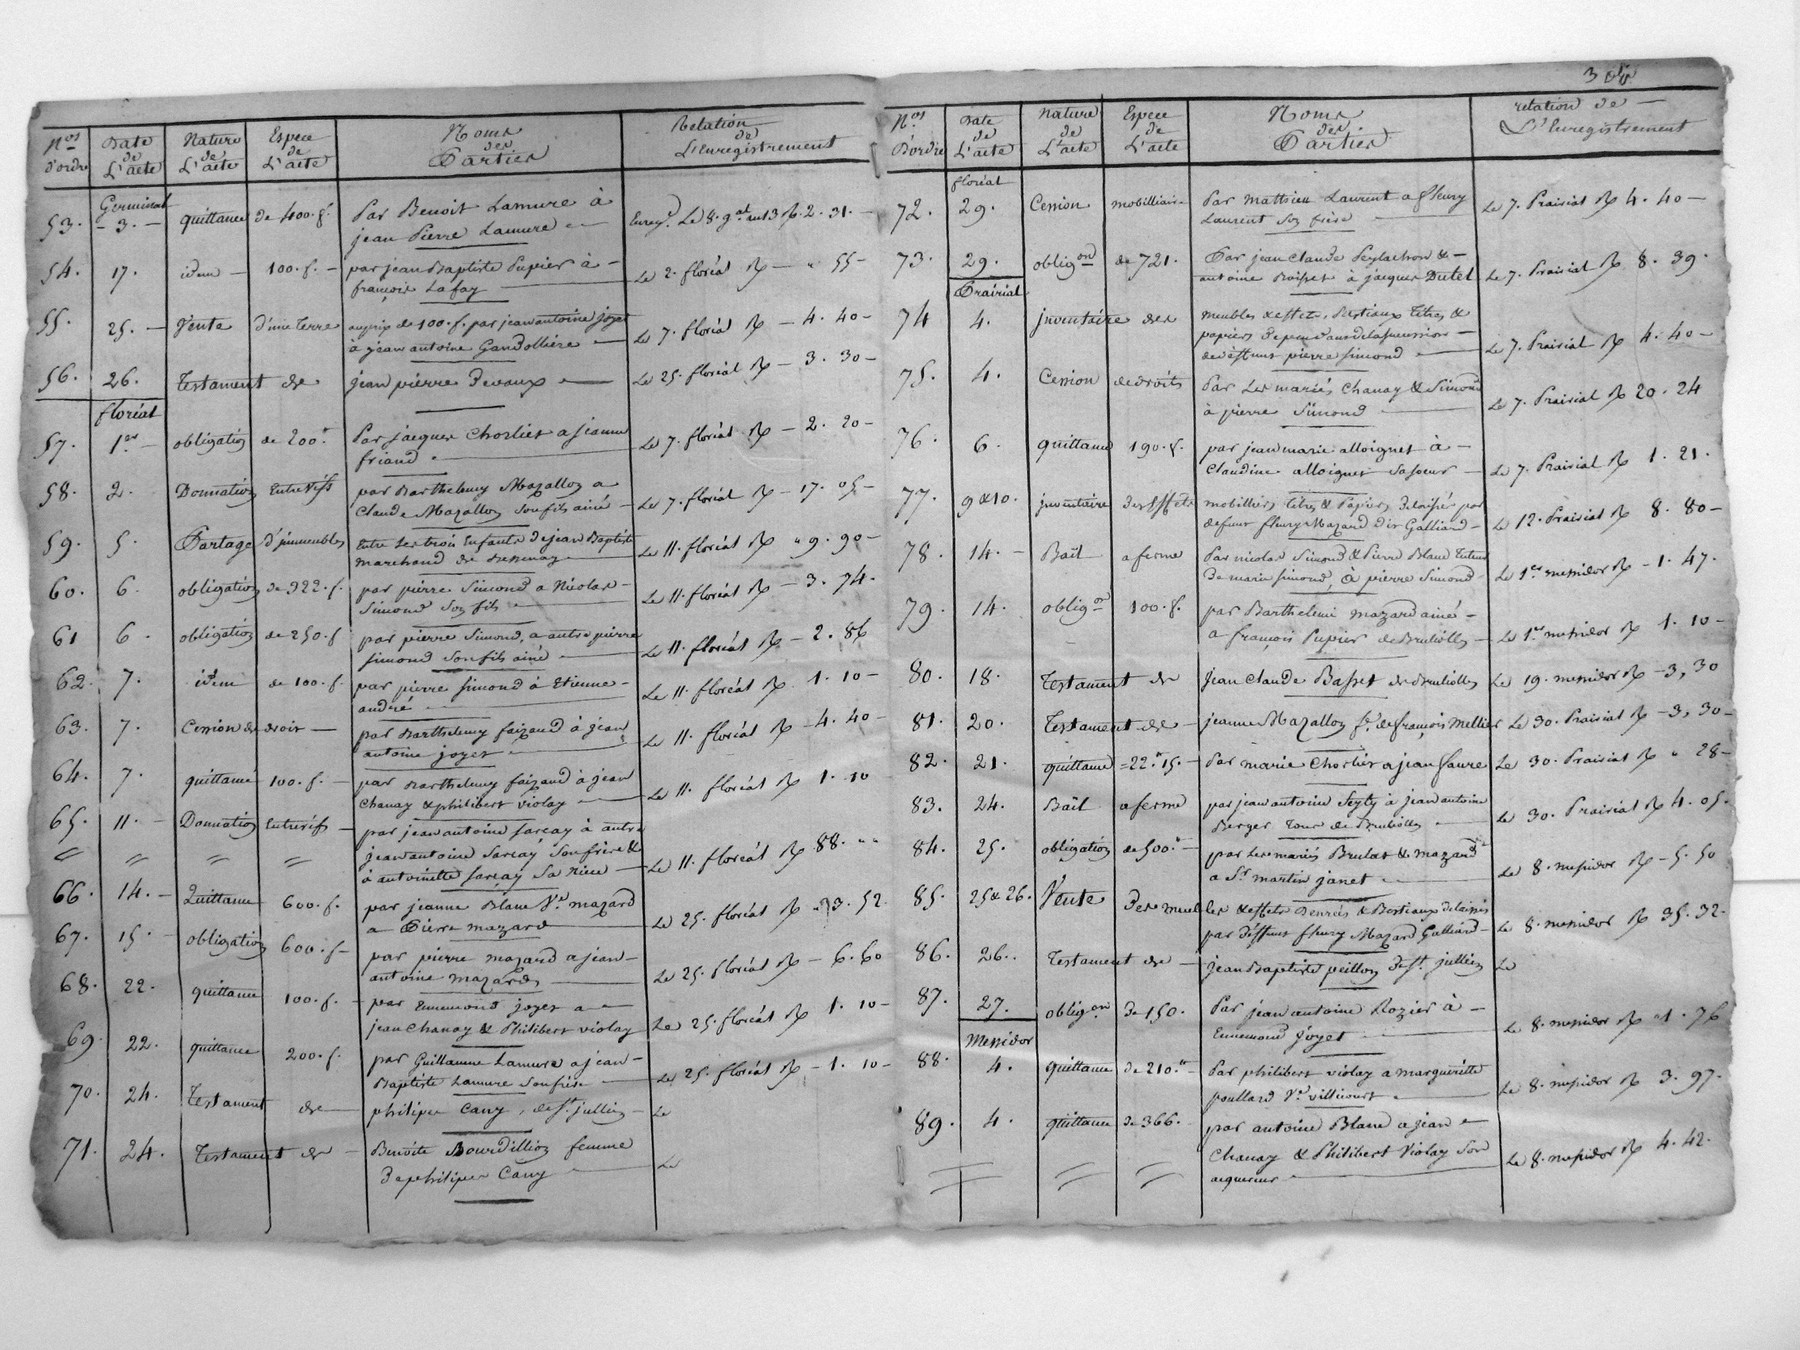 Nos d'ordre | Date de L'acte | Nature de L'acte | Espece de L'acte | Noms des Parties | Relation de L'Enregistrement
Germinal
53. | 3. | quittance | de 400. f. | Par Benoit Lamure à
jean Pierre Lamure | Le 8. an 13 R. 2. 31.
54. | 17. | idem | 100. f. | par jean Baptiste Pupier à
françois Lafay | Le 2. floréal R " 55
55. | 25. | Vente | d'une Terre | au prix de 100. f. par jean antoine joyet
à jean antoine Gandollière | Le 7. floréal R 4. 40
56. | 26. | Testament de | jean pierre Devaux | Le 25. floréal R 3. 30
floréal
57. | 1er | obligation | de 200 | Par jacques Chorlier a jeanne
friand | Le 7. floréal R 2. 20
58. | 2. | Donnation | Entre Vifs | par Barthelemy Mazallon a
Claude Mazallon son fils ainé | Le 7. floréal R 17. 05
59. | 5. | Partage | d'immeubles | Entre les trois Enfants de jean Baptiste
marchand de | Le 11. floréal R " 9. 90
60. | 6. | obligation | de 322. f. | par pierre Simond a Nicolas
Simond Son fils | Le 11. floréal R 3. 74.
61 | 6. | obligation | de 250. f | par pierre Simond, a autre pierre
Simond Son fils ainé | Le 11. floréal R 2. 86
62. | 7. | idem | de 100. f. | par pierre Simond à Etienne
andré | Le 11. floréal R 1. 10
63. | 7. | Cession de droir | par Barthelemy faizand à jean
antoine joyet | Le 11. floréal R 4. 40
64. | 7. | quittance | 100. f. | par Barthelemy faizand à jean
Chanay & philibert violay | Le 11. floréal R 1. 10
65. | 11. | Donnation | Entrevifs | par jean antoine Sarcay à autre
jean antoine Sarcay Son frère &
à antoinette Sarcay Sa niece | Le 11. floréal R 88. " "
66. | 14. | Quittance | 600. f. | par jeanne Blanc Ve mazard
a Pierre mazard | Le 25. floréal R 33. 52
67. | 15. | obligation | 600. f. | par pierre mazard a jean
antoine mazard | Le 25. floréal R 6. 60
68. | 22. | quittance | 100. f. | par Ennemond joyet a
jean Chanay & Philibert violay | Le 25. floréal R 1. 10
69. | 22. | quittance | 200. f. | par Guillaume Lamure a jean
Baptiste Lamure Son frère | Le 25. floréal R 1. 10
70. | 24. | Testament de | philipe Cany, de St. jullien | Le
71. | 24. | Testament de | Benoite Bourdillion femme
De philipe Cany | Le
308
Nos Dordre | Date de L'acte | Nature de L'acte | Espece de L'acte | Noms des Parties | relation de L'Enregistrement
floréal
72. | 29. | Cession | mobilliaire | Par Mathieu Laurent a fleury
Laurent Son frère | Le 7. Prairial R 4. 40
73. | 29. | obligon | de 721. | Par jean Claude Peylachon &
antoine Boisset à jacques Dutel | Le 7. Prairial R 8. 39.
Prairial
74 | 4. | jnventaire des | meubles & effets, Bestiaux titres &
papiers Dependans de la succession
de deffunt pierre Simond | Le 7. Prairial R 4. 40
75. | 4. | Cession | de droits | Par Les mariés Chanay & Simond
à pierre Simond | Le 7. Prairial R 20. 24
76. | 6. | quittance | 190. f. | par jean marie alloignet à
Claudine alloignet Sa soeur | Le 7. Prairial R 1. 21.
77. | 9 & 10. | jnventaire | des Effets | mobilliers, titres & Papiers Delaissés par
defunt fleury Mazard dit Galliard | Le 12. Prairial R 8. 80
78. | 14. | Bail | a ferme | Par nicolas Simond & Pierre Blanc tuteur
De marie Simond, à pierre Simond | Le 1er messidor R 1. 47.
79. | 14. | obligon | 100. f. | par Barthelemi mazard ainé
a françois Pupier de Brulliolles | Le 1er messidor R 1. 10
80. | 18. | Testament de | jean Claude Basset de Brulliolles | Le 19. messidor R 3, 30
81. | 20. | Testament de | jeanne Mazallon fe. de françois Mellier | Le 30. Prairial R 3, 30
82. | 21. | quittance | 22. 15. | Par marie Chorlier a jean faure | Le 30. Prairial R " 28
83. | 24. | Bail | a ferme | par jean antoine Seyty à jean antoine
Berger tour de Brulliolles | Le 30. Prairial R 4. 05.
84. | 25. | obligation | de 500. | par Les mariés Brulas & mazard
a Sr. martin janet | Le 8. messidor R 5. 50
85. | 25 & 26. | Vente | Des meubles & effets Denrées & Bestiaux delaissés
par deffunt fleury Mazard Galliard | Le 8. messidor R 35. 32.
86. | 26. | Testament de | jean Baptiste peillon De St. jullien | Le
87. | 27. | obligon | De 150. | Par jean antoine Rozier à
Ennemond joyet | Le 8. messidor R 1. 76
Messidor
88. | 4. | quittance | de 210. | Par philibert violay a margueritte
poullard Ve. villicourt | Le 8. messidor R 3. 97.
89. | 4. | quittance | de 366. | par antoine Blanc a jean
Chanay & Philibert Violay Son
acquereur | Le 8. messidor R 4. 42.